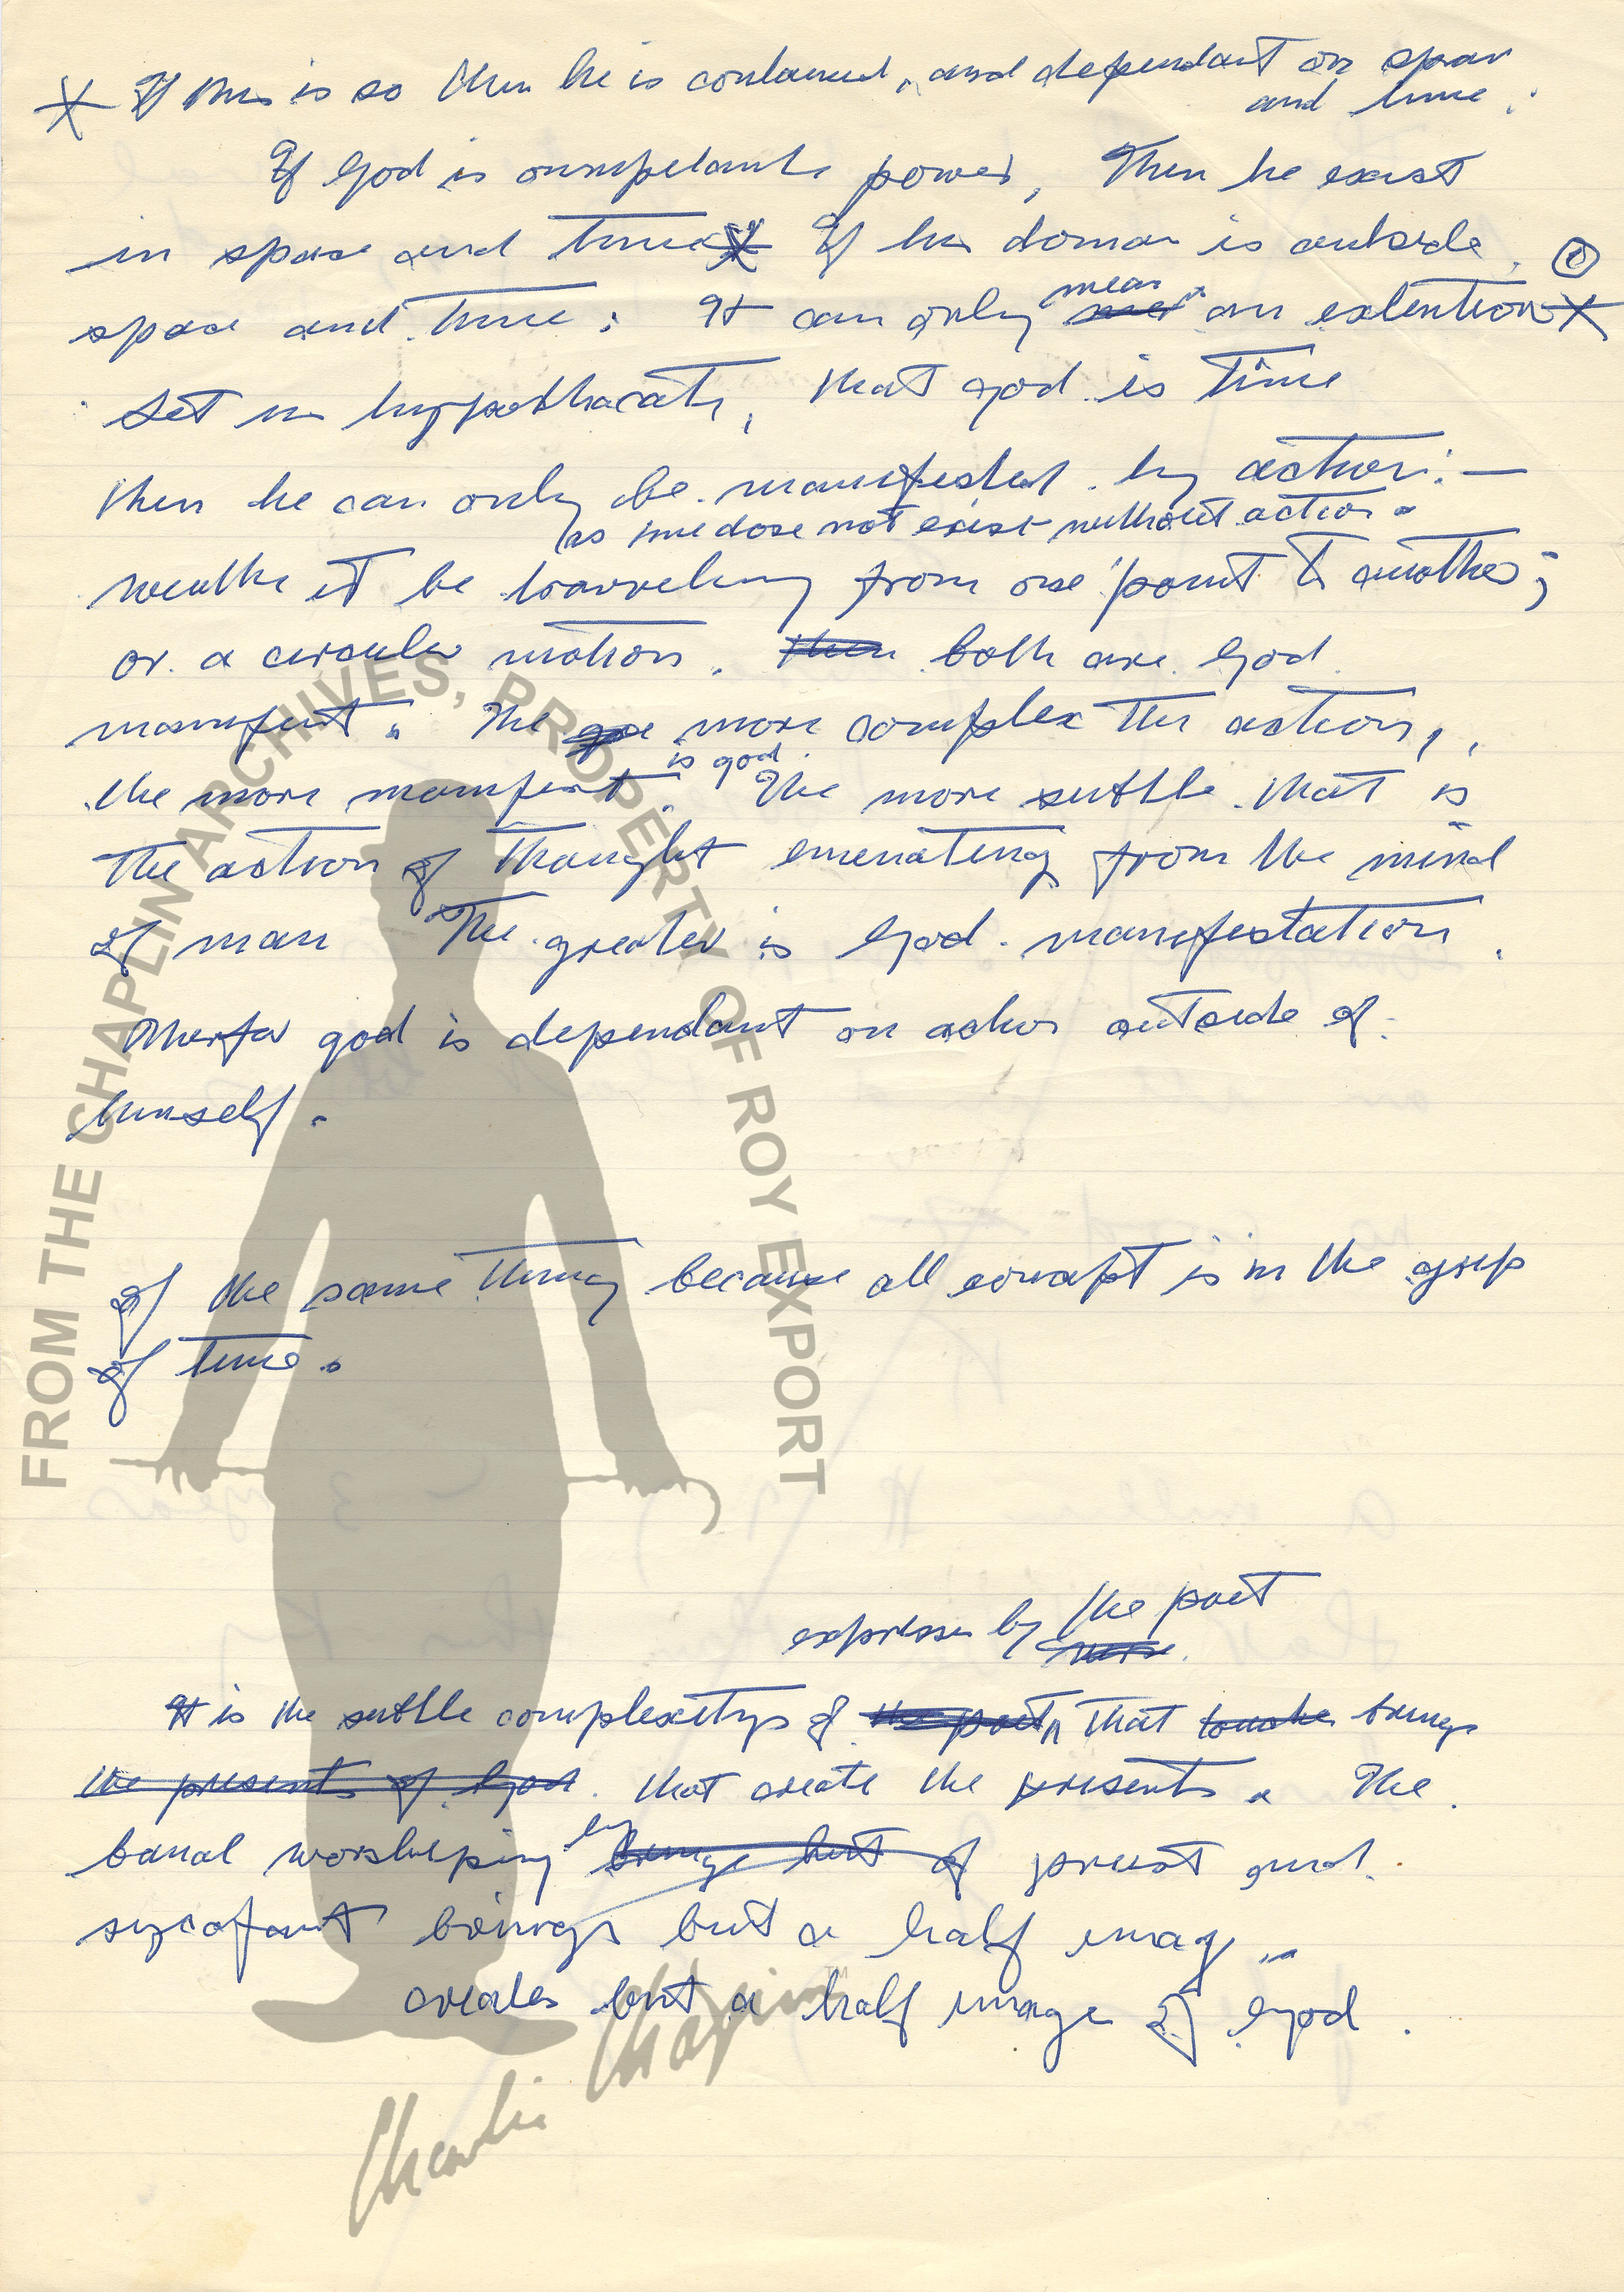 If this is so then he is contained, and dependant on space
and time.
If God is omnipotant power, Then he exist
in space and time If his domain is outside
space and time; It can only mean an extention
Let us hypothacate, that god is time
then he can only be manifested by action: —
as time dose not exist without action.
weathe it be travveling from one point to another;
or a circular motion. then both are God
manifest. The more complex the action,
is god
the more manifest. The more suttle that is
the action of thought emenating from the mind
of man The greater is God manifestation.
Therfor god is dependant on action outside of
himself.
of the same thing because all concept is in the grip
of time.
expresses by the poet
It is the suttle complexitys of the poet, that touche brings
the presents of God. that create the presents. The
banal worshiping by brings but of priest and
sycofant brings but a half imag
creates but a half image of God.
FROM THE CHAPLIN ARCHIVES, PROPERTY OF ROY EXPORT
Charlie Chaplin™